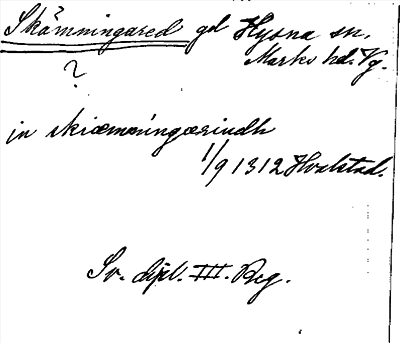 Skämningared gd Hyssna sn.
Marks hd. Vg.
?
in skiæmningærindh
1/9 1312 Hvalstad.
Sv. dipl. III. Reg.